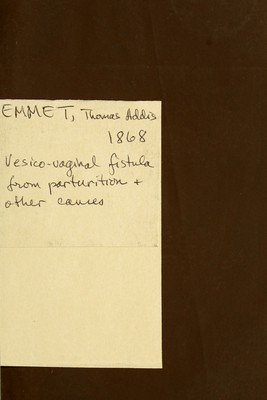 EMMET, Thomas Addis
1868
Vesico-vaginal fistula
from parturition +
other causes